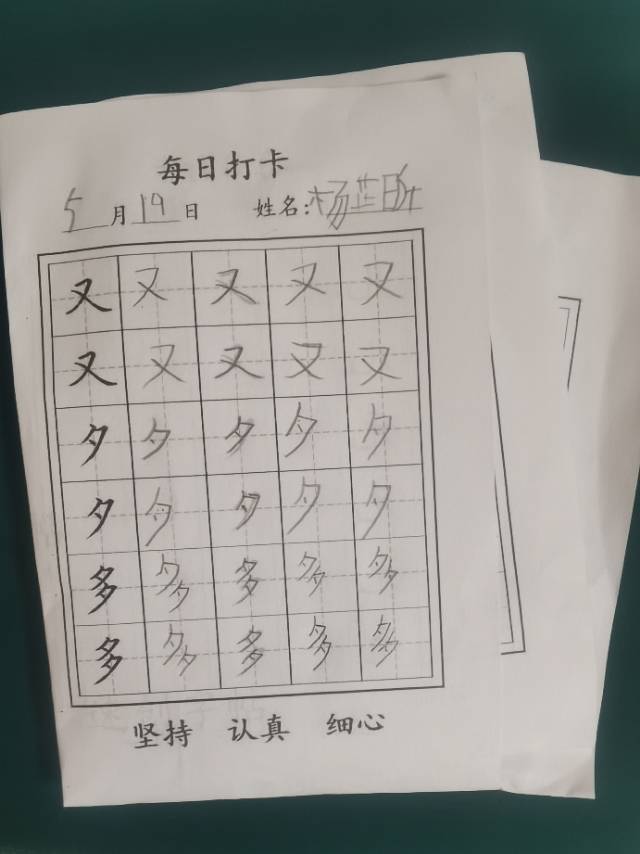 每日打卡
5月19日 姓名:杨芷
又又又又又
又又又又又
夕夕夕夕夕
夕夕夕夕夕
多多多多多
多多多多多
坚持 认真 细心